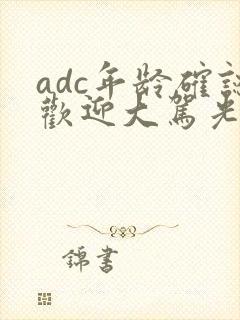 adc年龄確認
歡迎大駕光
錦書